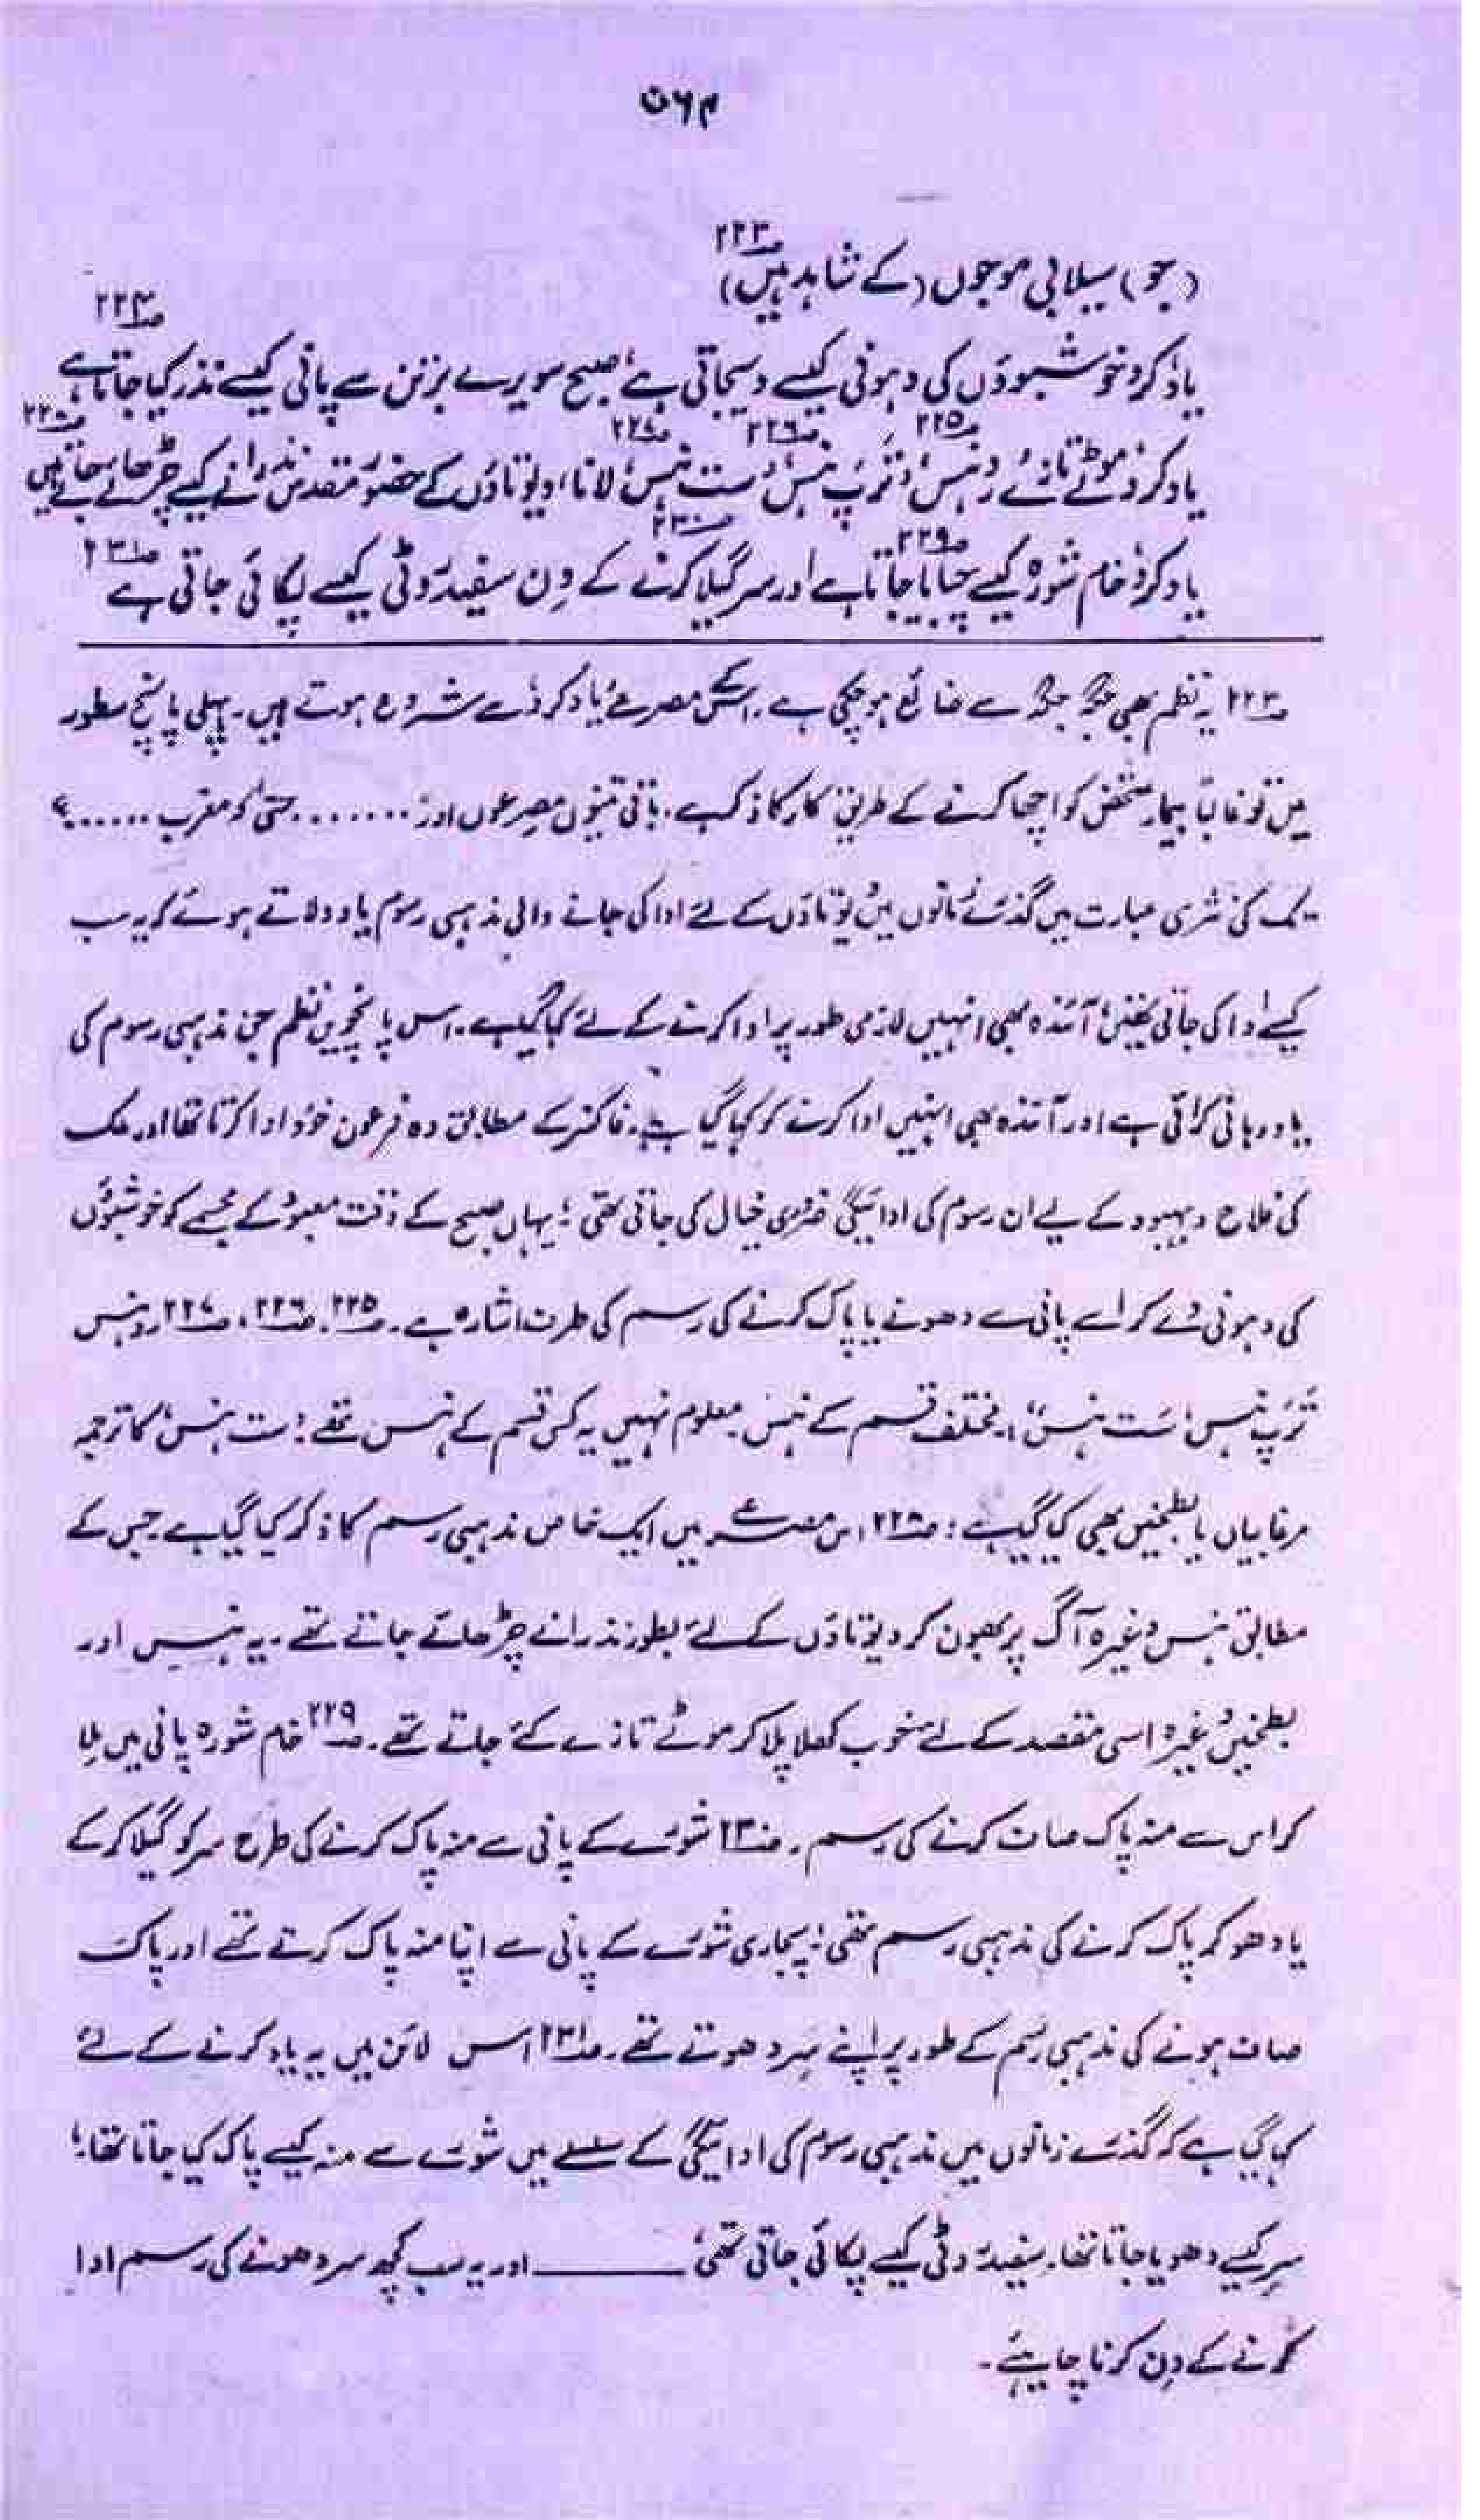 ۵۶۴
(جو) سیلابی موجوں (کے شاہد ہیں) ۲۲۳
یاد کرو خوشبوؤں کی دہونی کیسے دیجاتی ہے، صبح سویرے برتن سے پانی کیسے نذر کیا جاتا ہے ۲۲۴
یاد کرو، موٹے تازے رہنس، ۲۲۵ تُرپ ہنس، ۲۲۶ ست ہنس، ۲۲۷ لانا، دیوتاؤں کے حضور مقدس نذرانے کیسے چڑھائے جاتے ہیں ۲۲۸
یاد کرو، خام شورہ کیسے چبایا جاتا ہے ۲۲۹ اور سر گیلا کرنے کے ۲۳۰ دِن سفید روٹی کیسے پکائی جاتی ہے ۲۳۱
۲۲۳ یہ نظم بھی جگہ جگہ سے ضائع ہو چکی ہے۔ اسکے مصرعے 'یاد کرو' سے شروع ہوتے ہیں۔ پہلی پانچ سطور
میں تو غالباً بیمار شخص کو اچھا کرنے کے طریق کار کا ذکر ہے۔ باقی تینوں مصرعوں اور ....... حتیٰ کہ مغرب ......؟
تک کی نثری عبارت میں گذشتہ زمانوں میں دیوتاؤں کے لئے ادا کی جانے والی مذہبی رسوم یاد دلاتے ہوئے کہ یہ سب
کیسے ادا کی جاتی تھیں، آئندہ بھی انہیں لازمی طور پر ادا کرنے کے لئے کہا گیا ہے۔ اس پانچویں نظم جن مذہبی رسوم کی
یاد دہانی کرائی ہے اور آئندہ بھی انہیں ادا کرنے کو کہا گیا ہے۔ فاکنر کے مطابق وہ فرعون خود ادا کرتا تھا اور ملک
کی فلاح و بہبود کے لیے ان رسوم کی ادائیگی ضروری خیال کی جاتی تھی؛ یہاں صبح کے وقت معبود کے مجسمے کو خوشبوؤں
کی دہونی دے کر اسے پانی سے دھونے یا پاک کرنے کی رسم کی طرف اشارہ ہے۔ ۲۲۵، ۲۲۶، ۲۲۷ رہنس
تُرپ ہنس، ست ہنس؛ مختلف قسم کے ہنس۔ معلوم نہیں یہ کس قسم کے ہنس تھے؛ ست ہنس، کا ترجمہ
مرغابیاں یا بطخیں بھی کیا گیا ہے؛ ۲۲۸ اس مصرعے میں ایک خاص مذہبی رسم کا ذکر کیا گیا ہے جس کے
مطابق ہنس وغیرہ آگ پر بھون کر دیوتاؤں کے لئے بطور نذرانے چڑھائے جاتے تھے۔ یہ ہنس اور
بطخیں وغیرہ اسی مقصد کے لئے خوب کھلا پلا کر موٹے تازے کئے جاتے تھے۔ ۲۲۹ خام شورہ پانی میں ملا
کر اس سے منہ پاک صاف کرنے کی رسم۔ ۲۳۰ شورے کے پانی سے منہ پاک کرنے کی طرح سر کو گیلا کر کے
یا دھو کر پاک کرنے کی مذہبی رسم تھی؛ پجاری شورے کے پانی سے اپنا منہ پاک کرتے تھے اور پاک
صاف ہونے کی مذہبی رسم کے طور پر اپنے سر دھوتے تھے۔ ۲۳۱ اس لائن میں یہ یاد کرنے کے لئے
کہا گیا ہے کہ گذشتہ زمانوں میں مذہبی رسوم کی ادائیگی کے سلسلے میں شورے سے منہ کیسے پاک کیا جاتا تھا؛
سر کیسے دھویا جاتا تھا۔ سفید روٹی کیسے پکائی جاتی تھی، ــــــــ اور یہ سب کچھ سر دھونے کی رسم ادا
کرنے کے دِن کرنا چاہیئے۔